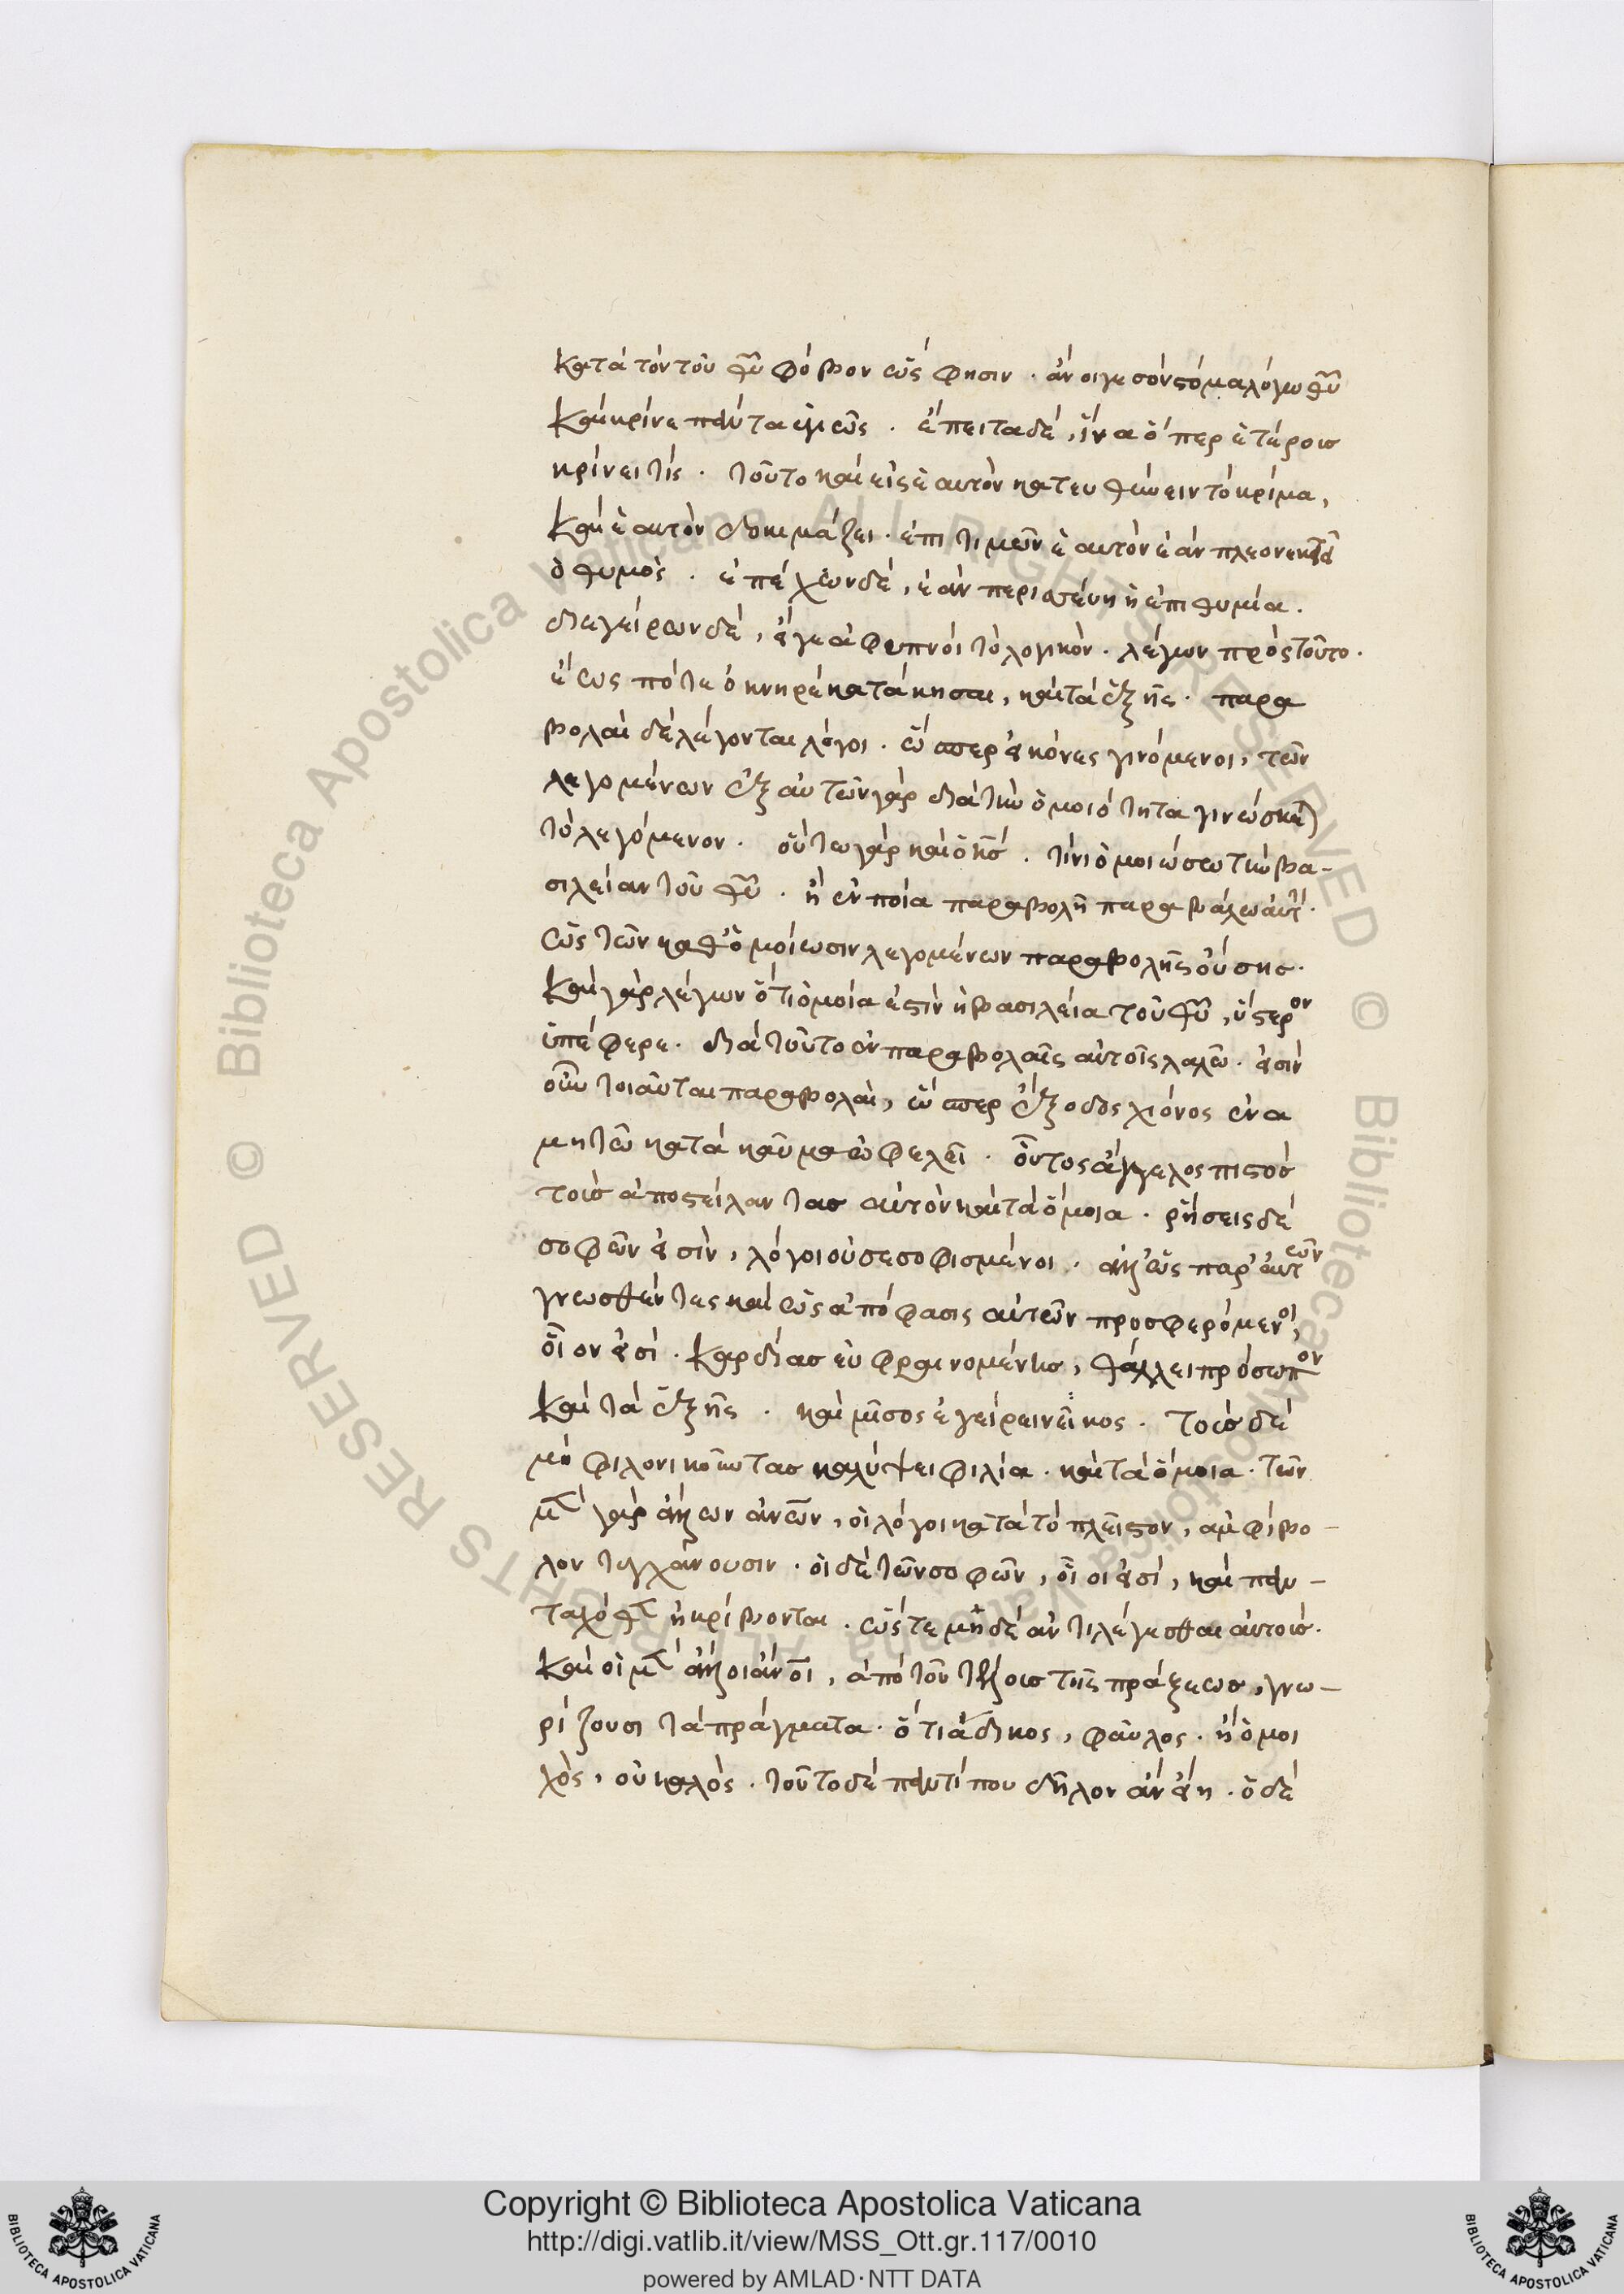 κατὰ τὸν τοῦ θυ φόβον ὥς φησιν · ἄνοιγε σὸν στόμα λόγω θυ
καὶ κρίνε πάντα ὑγιῶς · ἔπειτα δὲ, ἵνα ὅπερ ἑτέροισ
κρίνει τίς · τοῦτο καὶ εἰς ἑαυτὸν κατευθύνειν τὸ κρίμα,
καὶ ἑαυτὸν δοκιμάζει · ἐπιτιμῶν ἑαυτὸν ἐὰν πλεονεκτῆ
ὁ θυμὸς · ἐπέχων δὲ, ἐὰν περισπεύδη ἡ ἐπιθυμία.
διεγείρων δὲ, εἴγε ἀφυπνοῖ τὸ λογικὸν · λέγων πρὸς τοῦτο ·
ἕως πότε ὀκνηρὲ κατάκησαι, καὶ τὰ ἑξῆς · παρα
βολαὶ δὲ λέγονται λόγοι · ὥσπερ εἰκόνες γινόμενοι, τῶν
λεγομένων ἐξ αὐτῶν γὰρ διὰ τὴν ὁμοιότητα γινώσκε)
τὸ λεγόμενον · οὕτω γὰρ καὶ ὁ κσ · τίνι ὁμοιώσω τὴν βα-
σιλείαν τοῦ θυ · ἢ ἐν ποία παραβολῆ παραβάλω αὐτ ·
ὡς τῶν καθ' ὁμοίωσιν λεγομένων παραβολῆς οὔσης ·
καὶ γὰρ λέγων ὅτι ὁμοία ἐστὶν ἡ βασιλεία τοῦ θυ, ὕστερον
ἐπέφερε · διὰ τοῦτο ἐν παραβολαῖς αὐτοῖς λαλῶ · εἰσὶν
οὖν τοιαῦται παραβολαὶ, ὥσπερ ἔξοδος χιόνος ἐν α
μητῶ κατὰ καῦμα ὠφελεῖ · οὕτος ἄγγελος πιστὸσ
τοὺσ ἀποστείλαντασ αὐτὸν καὶ τὰ ὅμοια · ῥήσεις δὲ
σοφῶν εἰσὶν, λόγοι οὐ σεσοφισμένοι · ἀλλ' ὡς παρ' αὐτῶν
γνωσθέντες καὶ ὡς ἀπόφασις αὐτῶν προσφερόμενοι,
οἷον εἰσί · καρδίασ εὐφραινομένησ, θάλλει πρόσωπον
καὶ τὰ ἑξῆς · καὶ μῖσος ἐγείρει νεῖκος · τοὺσ δὲ
μὴ φιλονικοῦντασ καλύψει φιλία · καὶ τὰ ὅμοια · τῶν
μὲν γὰρ ἄλλων ἀνῶν, οἱ λόγοι κατὰ τὸ πλεῖστον, ἀμφίβο-
λον τυγχάνουσιν · οἱ δὲ τῶν σοφῶν, οἷοι εἰσί, καὶ παν-
ταχόθεν ἠκρίβονται · ὥστε μὴ δὲ ἀντιλέγεσθαι αὐτοισ ·
καὶ οἱ μὲν ἄλλοι ἄνοι, ἀπὸ τοῦ τέλους τῆς πράξεως, γνω-
ρίζουσι τὰ πράγματα · ὅτι ἄδικος, φαῦλος · ἢ ὁ μοι
χὸς, οὐ καλὸς · τοῦτο δὲ παντί που δῆλον ἂν εἴη · ὁ δὲ